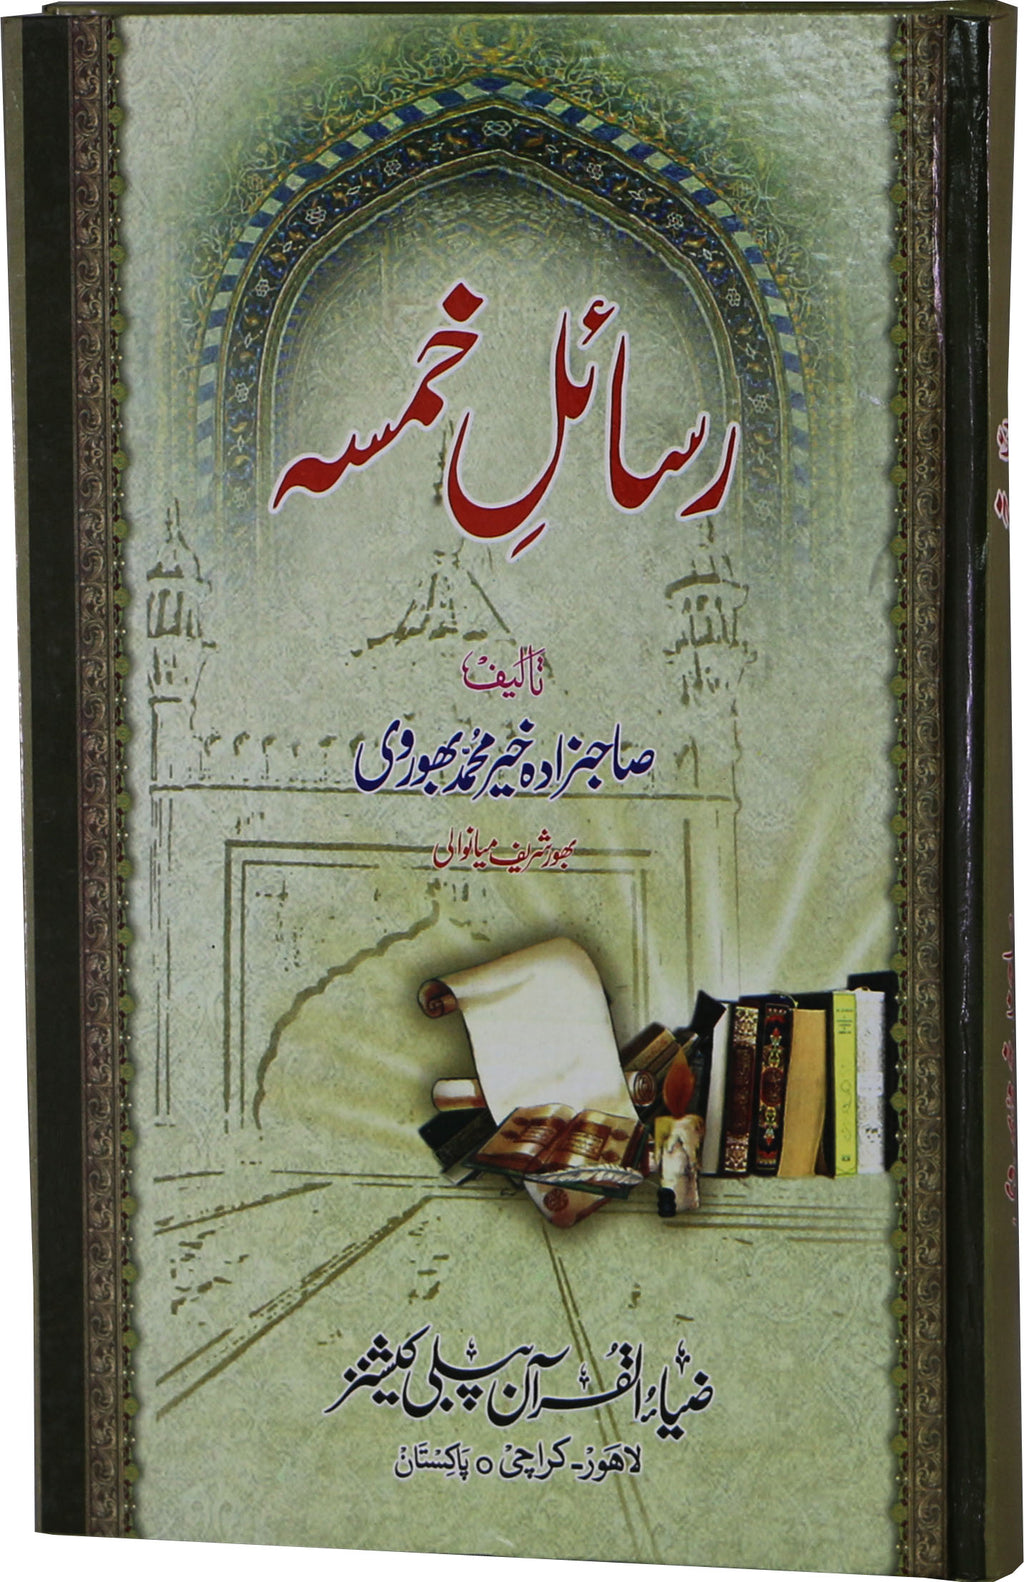 رسائلِ خمسہ
تالیف
صاحبزادہ خیر محمد بھوروی
بھور شریف میانوالی
ضیاء القرآن پبلی کیشنز
لاہور - کراچی ٥ پاکستان